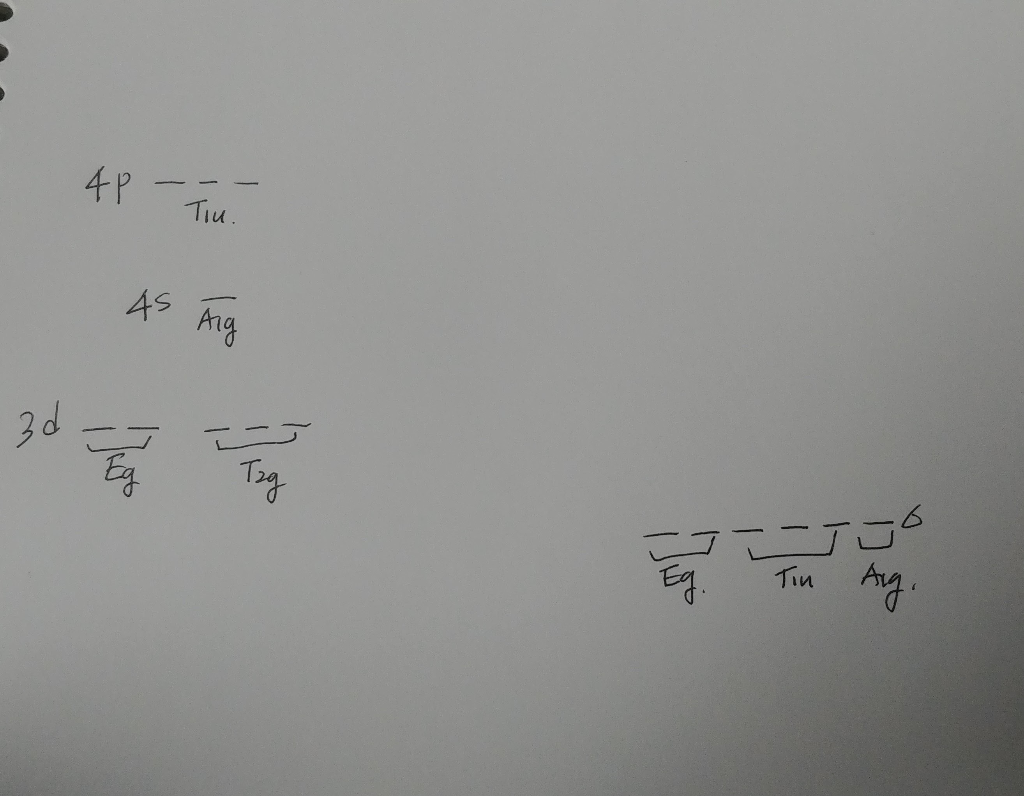 4p — — —
T1u.
4s —
A1g
3d — — — — —
Eg T2g
— — — — — — 6
Eg. T1u A1g.